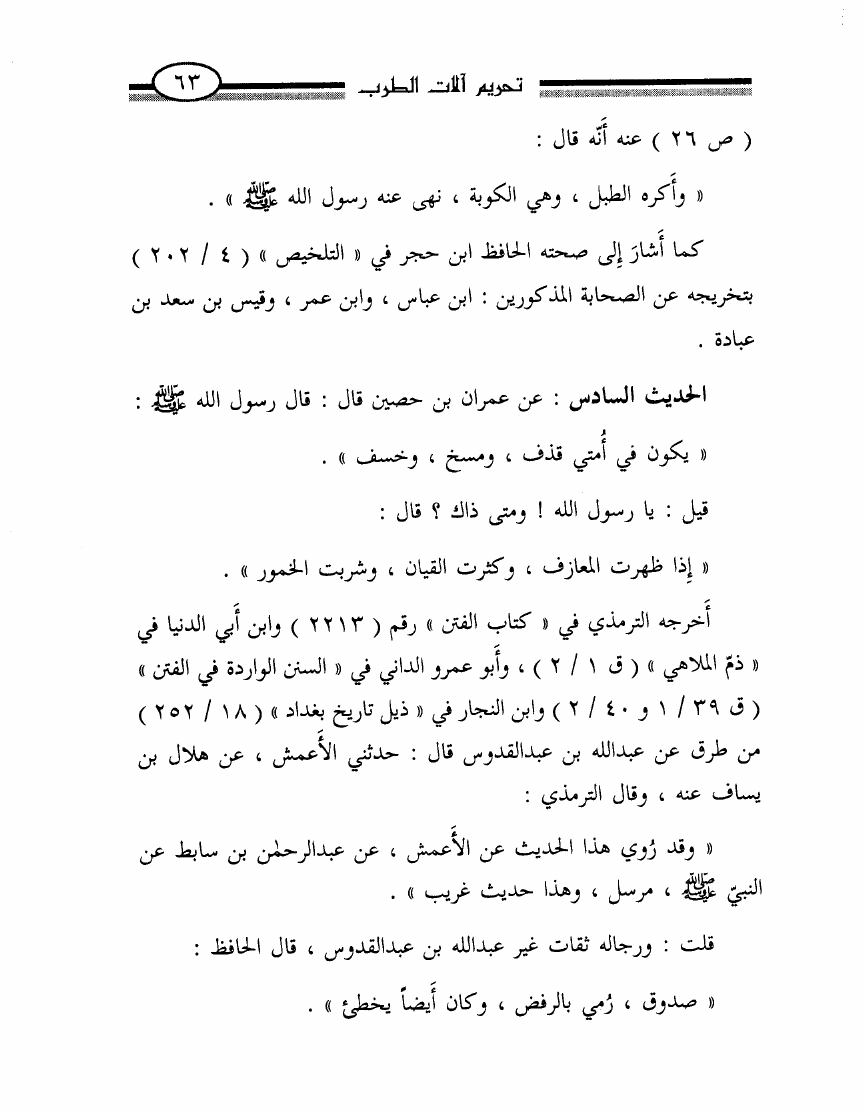 تحريم آلات الطرب ٦٣
( ص ٢٦ ) عنه أَنّه قال :
« وأَكره الطبل ، وهي الكوبة ، نهى عنه رسول الله ﷺ » .
كما أَشارَ إِلى صحته الحافظ ابن حجر في « التلخيص » ( ٤ / ٢٠٢ )
بتخريجه عن الصحابة المذكورين : ابن عباس ، وابن عمر ، وقيس بن سعد بن
عبادة .
الحديث السادس : عن عمران بن حصين قال : قال رسول الله ﷺ :
« يكون في أُمتي قذف ، ومسخ ، وخسف » .
قيل : يا رسول الله ! ومتى ذاك ؟ قال :
« إِذا ظهرت المعازف ، وكثرت القيان ، وشربت الخمور » .
أَخرجه الترمذي في « كتاب الفتن » رقم ( ٢٢١٣ ) وابن أَبي الدنيا في
« ذمّ الملاهي » ( ق ١ / ٢ ) ، وأَبو عمرو الداني في « السنن الواردة في الفتن »
( ق ٣٩ / ١ و ٤٠ / ٢ ) وابن النجار في « ذيل تاريخ بغداد » ( ١٨ / ٢٥٢ )
من طرق عن عبدالله بن عبدالقدوس قال : حدثني الأَعمش ، عن هلال بن
يساف عنه ، وقال الترمذي :
« وقد رُوي هذا الحديث عن الأَعمش ، عن عبدالرحمٰن بن سابط عن
النبيّ ﷺ ، مرسل ، وهذا حديث غريب » .
قلت : ورجاله ثقات غير عبدالله بن عبدالقدوس ، قال الحافظ :
« صدوق ، رُمي بالرفض ، وكان أَيضاً يخطئ » .